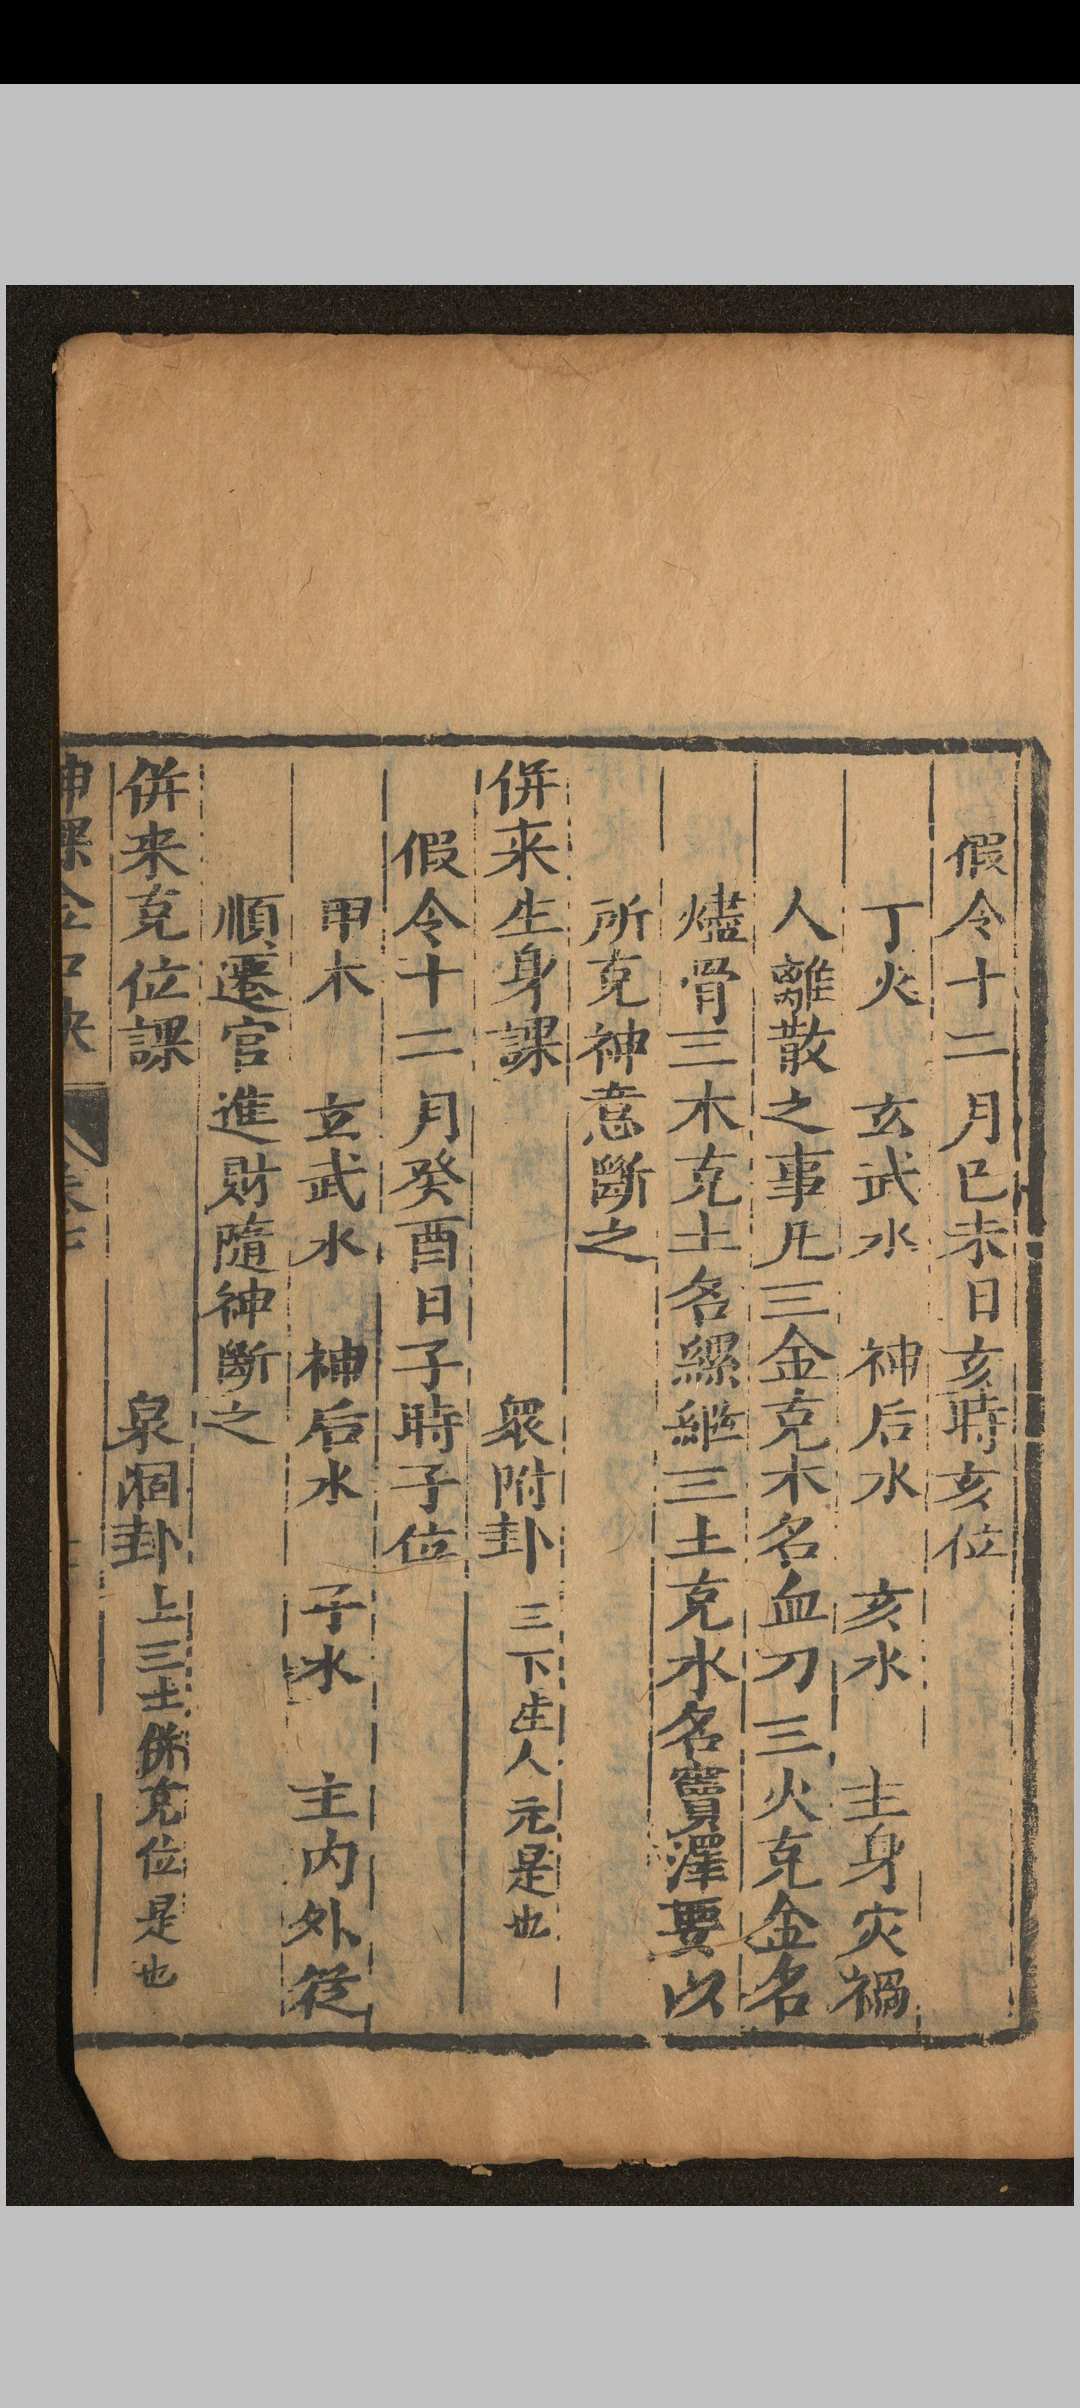 假令十二月己未日亥時亥位
丁火　玄武水　神后水　亥水　主身灾禍
人離散之事凡三金克木名血刀三火克金名
燼骨三木克土名縲絏三土克水名竇澤要以
所克神意斷之
併来生身課　衆附卦　三下生人元是也
假令十二月癸酉日子時子位
甲木　玄武水　神后水　子水　主内外筳
順遷官進財隨神斷之
併来克位課　泉涸卦　上三土併克位是也
神課金口訣　卷六